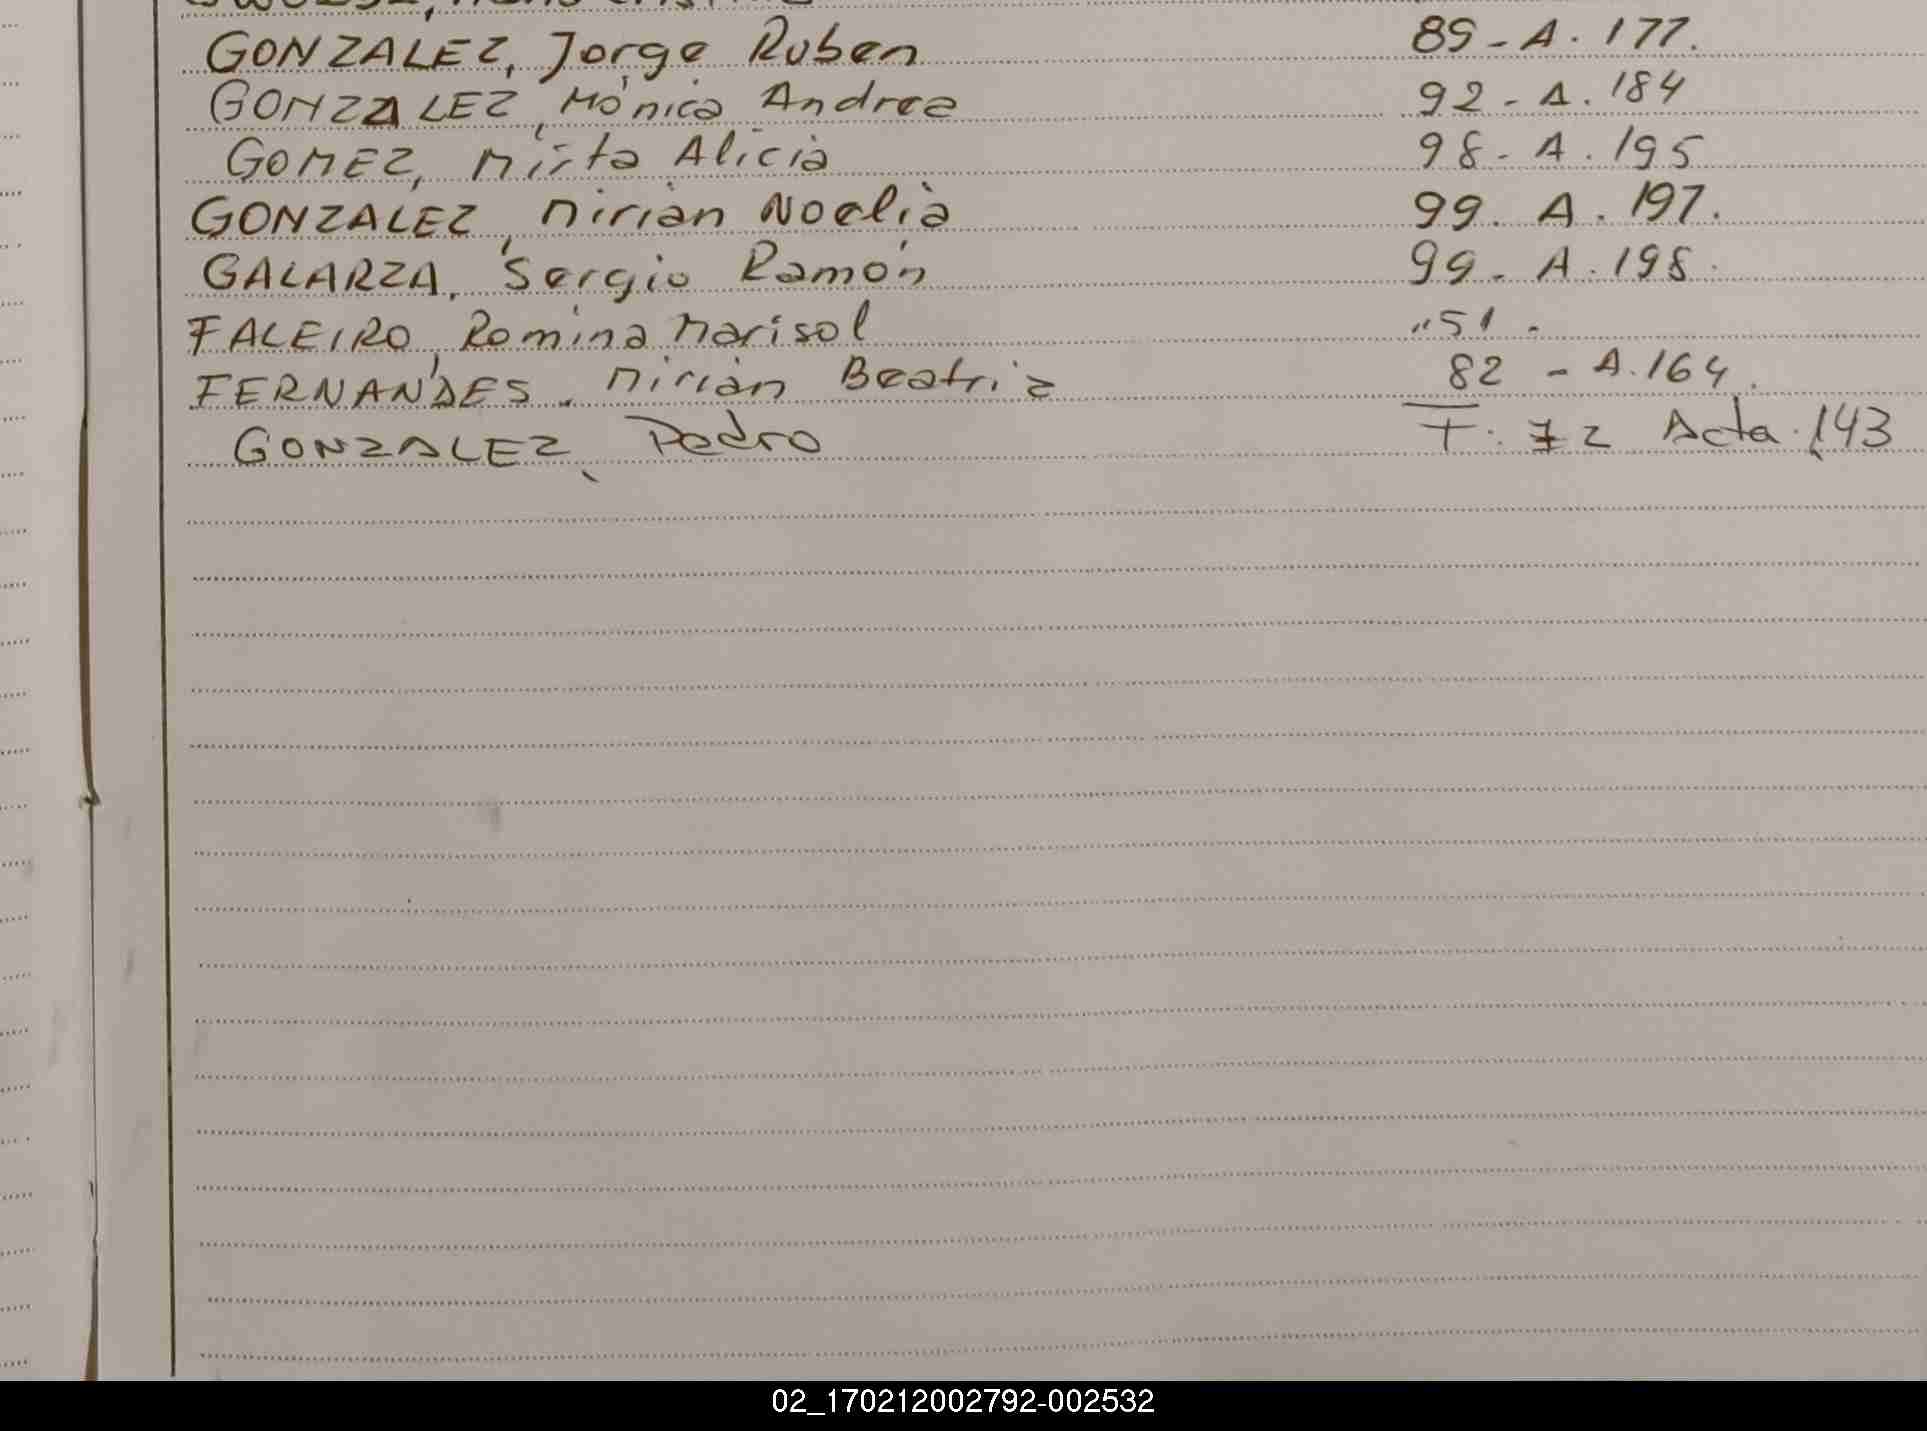 GONZALEZ, Jorge Ruben 89-A.177.
GONZALEZ, Mónica Andrea 92-A.184
GOMEZ, Mirta Alicia 98-A.195
GONZALEZ, Mirian Noelia 99.A.197.
GALARZA, Sergio Ramón 99-A.198.
FALEIRO, Romina Marisol "51.
FERNANDES, Mirian Beatriz 82-A.164.
GONZALEZ, Pedro T. 72 Acta.143
02_170212002792-002532